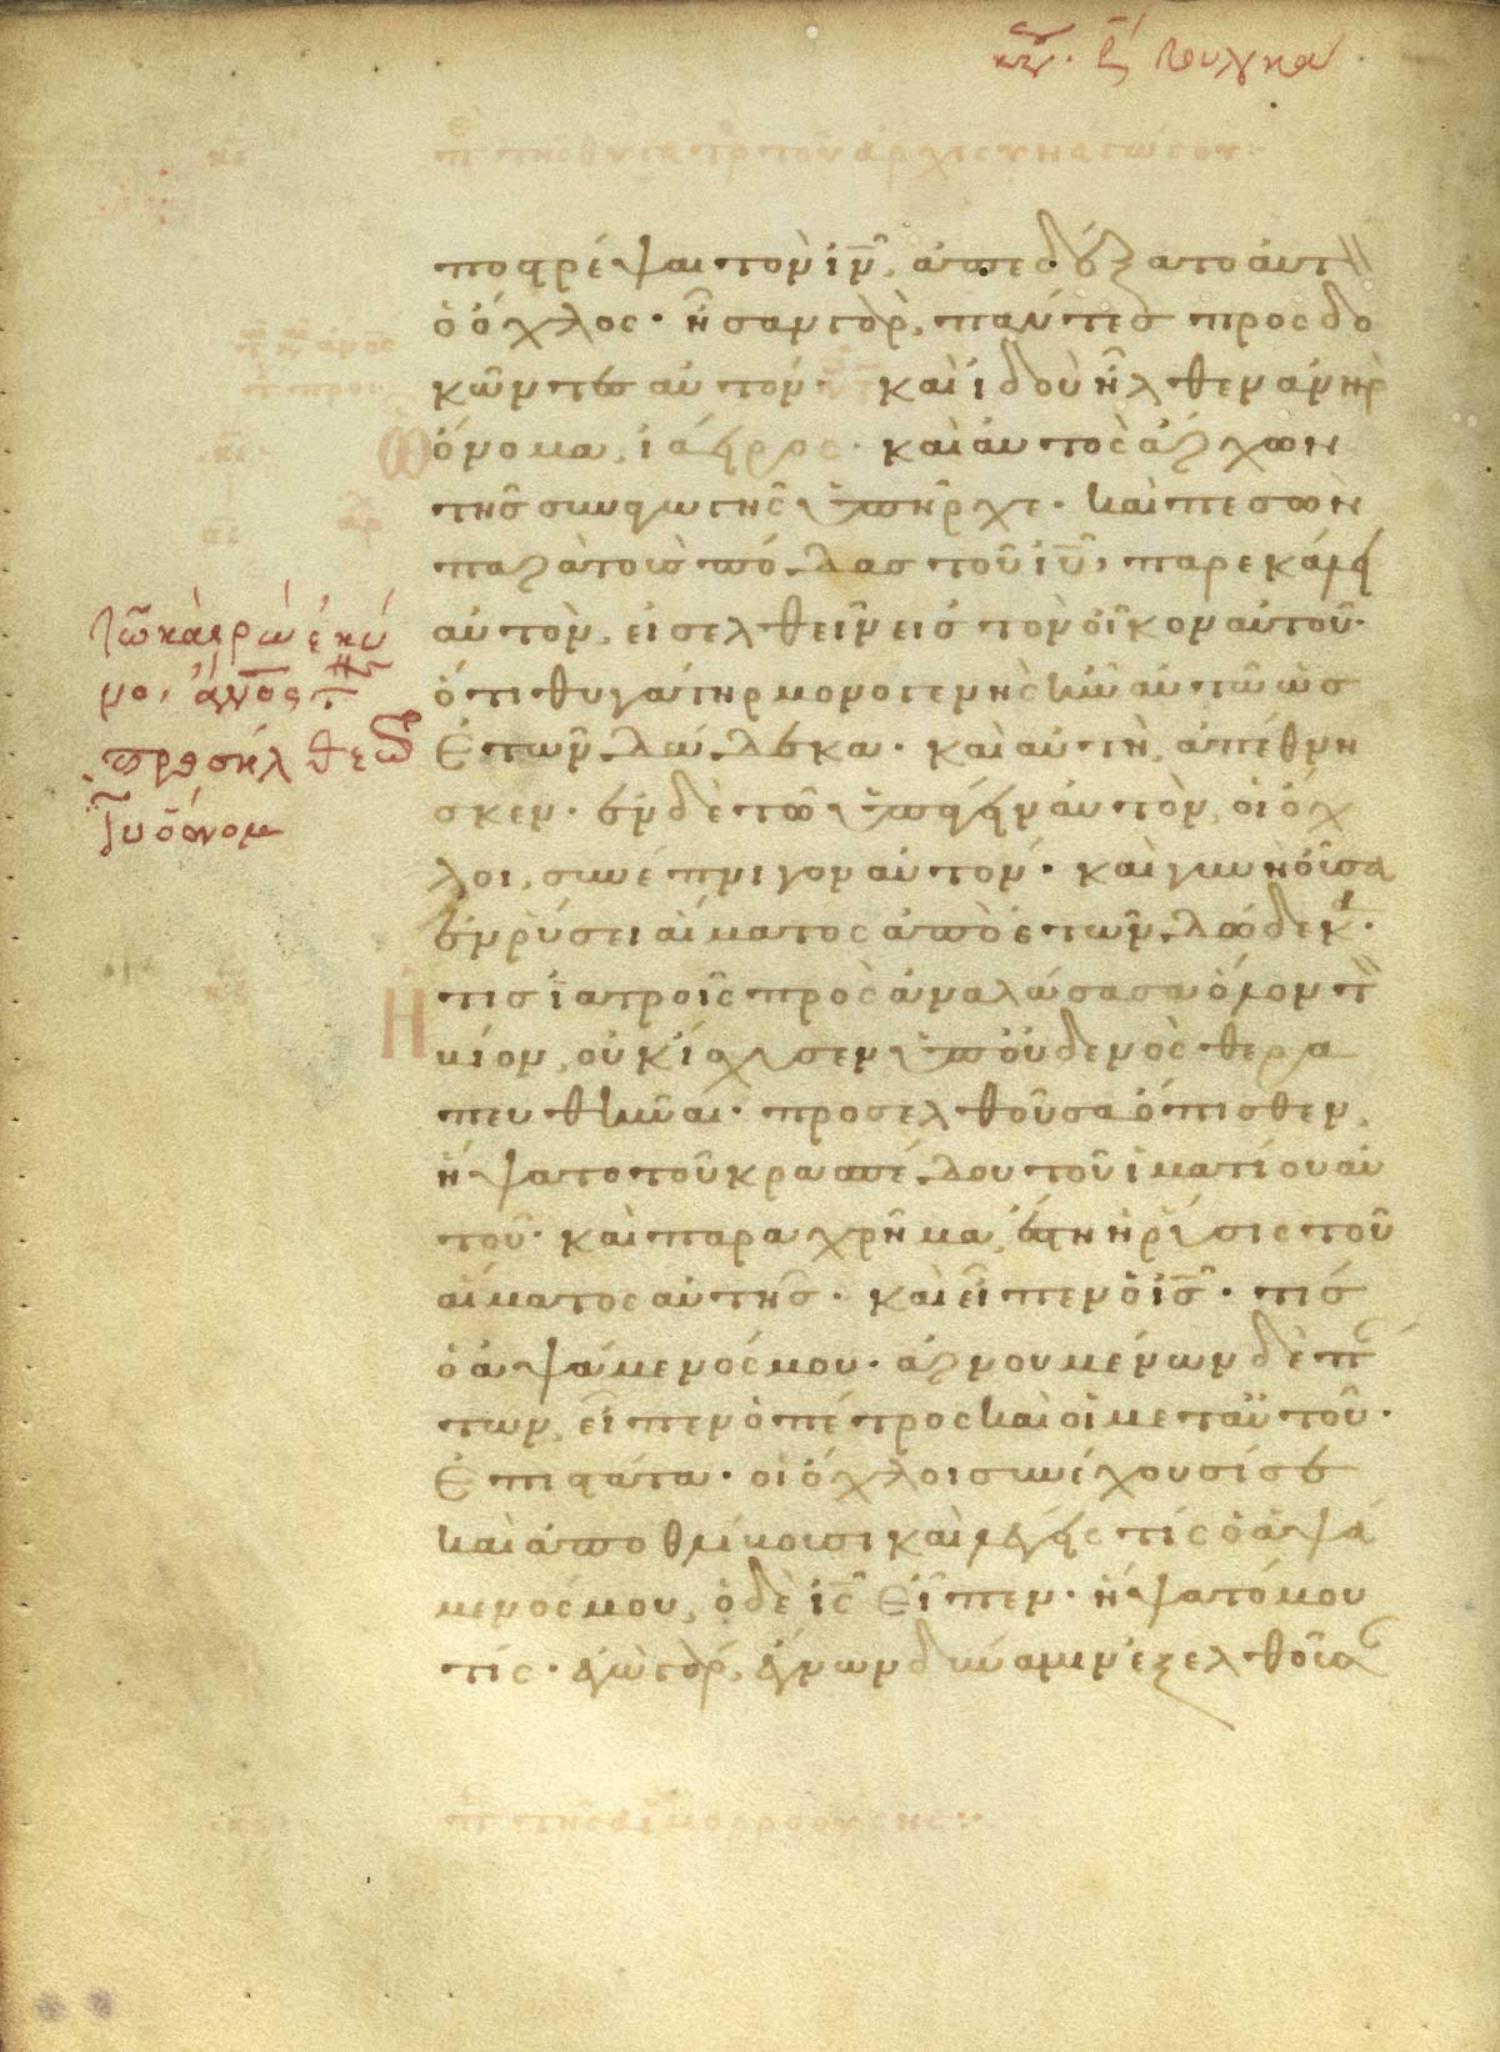 κυ. ϛ λουκα
π τῆς θυγατρ τοῦ ἀρχισυναγώγου
ποστρέψαι τὸν ἰν̅, ἀπεδέξατο ἀυτ
ὁ ὄχλος· ἦσαν γὰρ, πάντες προσδο
κῶντες αὐτόν· καὶ ἰδοὺ ἦλθεν ἀνὴρ
ὧ ὄνομα, ἰάειρος· καὶ ἀυτὸς ἄρχων
τῆς συναγωγῆς ὑπῆρχε· καὶ πεσὼν
παρὰ τοὺσ πόδασ τοῦ ἰυ̅, παρεκάλει
αὐτὸν, εἰσελθεῖν εἰσ τὸν οἶκον αὐτοῦ·
ὅτι θυγάτηρ μονογενὴς ἦν αὐτῶ ὡσ
ἐτῶν δώδεκα· καὶ αὐτὴ, ἀπέθνη
σκεν· ἐν δὲ τῶ ὑπάγειν ἀυτὸν, οἱ ὄχ
λοι, συνέπνιγον αὐτόν· καὶ γυνὴ οὖσα
ἐν ῥύσει αἵματος ἀπὸ ἐτῶν δώδεκ·
Ητισ ἰατροῖς προσἀναλώσασα ὅλον τ
κίον, οὐκ ἴσχυσεν ὑπ ὀυδενὸς θερα
πευθῆναι· προσελθοῦσα ὄπισθεν,
ἥψατο τοῦ κρασπέδου τοῦ ἱματίου αὐ
τοῦ· καὶ παραχρῆμα, ἔστη ἡ ῥύσις τοῦ
αἵματος αὐτῆς· καὶ εἶπεν ὁ ἰσ̅· τίσ
ὁ ἁψάμενός μου· ἀρνουμένων δὲ π
των, εἶπεν ὁ πέτρος καὶ οἱ μετ αὐτοῦ·
ἐπιστάτα· οἱ ὄχλοι συνέχουσί σε
καὶ ἀποθλίβουσι καὶ λέγεις τίς ὁ ἁψά
μενός μου, ὁ δὲ ἰς̅ εἶπεν· ἥψατό μου
τίς· ἐγὼ γὰρ, ἔγνων δύναμιν ἐξελθοῦσ
Τῶ καιρῶ ἐκεί
νο, ἀνο̅ς τ
προσήλθε τῶ
ἰυ ὃ ὄνομ
π τῆς αἱμορροούσης